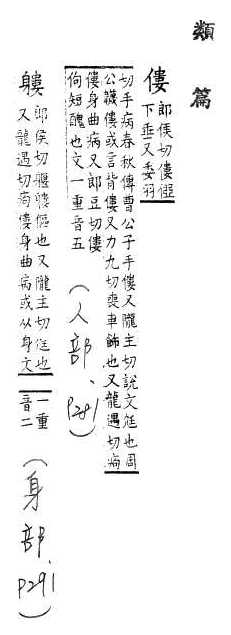 類篇
僂 郎侯切僂
下垂又委羽
切手病春秋傳曹公子手僂又隴主切說文尫也周
公韤僂或言背僂又力九切喪車飾也又龍遇切痀
僂身曲病又郎豆切僂
佝短醜也文一重音五
(人部、P281)
軁 郎侯切軀軁傴也又隴主切尫也
又龍遇切痀僂身曲病或从身文一重
音二
(身部、P291)